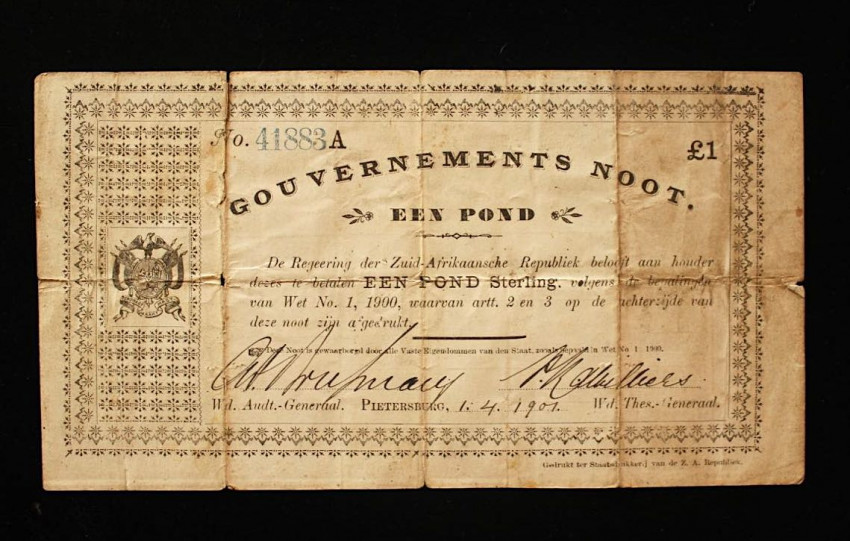 No. 41883 A
£1
GOUVERNEMENTS NOOT.
EEN POND
De Regeering der Zuid-Afrikaansche Republiek belooft aan houder
dezes te betalen EEN POND Sterling, volgens de bepalingen
van Wet No. 1, 1900, waarvan artt. 2 en 3 op de achterzijde van
deze noot zijn afgedrukt.
Deze Noot is gewaarborgd door alle Vaste Eigendommen van den Staat, zooals bepaald in Wet No. 1 1900.
Wd. Audt.-Generaal. PIETERSBURG, 1. 4. 1901. Wd. Thes.-Generaal.
Gedrukt ter Staatsdrukkerij van de Z. A. Republiek.